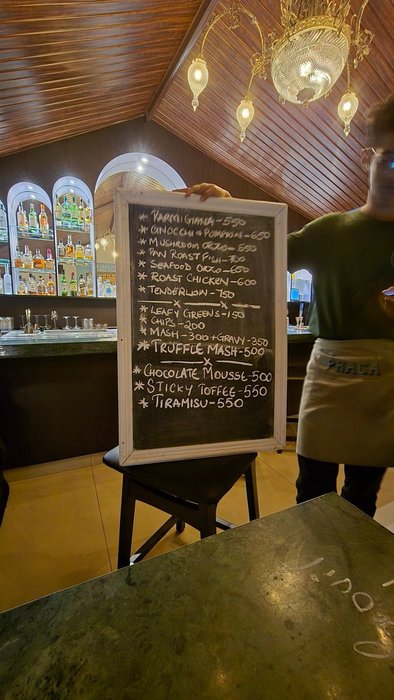 * PARMIGIANA - 550
* GNOCCHI & PUMPKIN - 650
* MUSHROOM ORZO - 550
* PAN ROAST FISH - 700
* SEAFOOD ORZO - 650
* ROAST CHICKEN - 600
* TENDERLOIN - 750
x x x
* LEAFY GREENS - 150
* CHIPS - 200
* MASH - 300 + GRAVY - 350
* TRUFFLE MASH - 500
x
* CHOCOLATE MOUSSE - 500
* STICKY TOFFEE - 550
* TIRAMISU - 550
PRAÇA